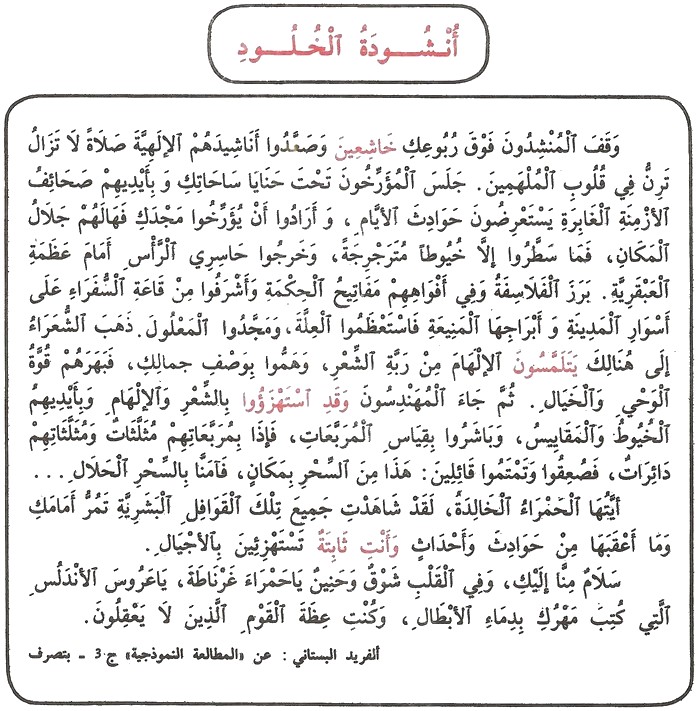 أُنْشُودَةُ ٱلْخُلُودِ
وَقَفَ ٱلْمُنْشِدُونَ فَوْقَ رُبُوعِكِ خَاشِعِينَ وَصَعَّدُوا أَنَاشِيدَهُمْ ٱلإِلَهِيَّةَ صَلَاةً لَا تَزَالُ
تَرِنُّ فِي قُلُوبِ ٱلْمُلْهَمِينَ. جَلَسَ ٱلْمُؤَرِّخُونَ تَحْتَ حَنَايَا سَاحَاتِكِ وَ بِأَيْدِيهِمْ صَحَائِفُ
ٱلأَزْمِنَةِ ٱلْغَابِرَةِ يَسْتَعْرِضُونَ حَوَادِثَ ٱلأَيَّامِ، وَ أَرَادُوا أَنْ يُؤَرِّخُوا مَجْدَكِ فَهَالَهُمْ جَلَالُ
ٱلْمَكَانِ، فَمَا سَطَّرُوا إِلَّا خُيُوطاً مُتَرَجْرِجَةً، وَخَرَجُوا حَاسِرِي ٱلْرَّأْسِ أَمَامَ عَظَمَةِ
ٱلْعَبْقَرِيَّةِ. بَرَزَ ٱلْفَلَاسِفَةُ وَفِي أَفْوَاهِهِمْ مَفَاتِيحُ ٱلْحِكْمَةِ وَأَشْرَفُوا مِنْ قَاعَةِ ٱلْسُّفَرَاءِ عَلَى
أَسْوَارِ ٱلْمَدِينَةِ وَ أَبْرَاجِهَا ٱلْمَنِيعَةِ فَاسْتَعْظَمُوا ٱلْعِلَّةَ، وَمَجَّدُوا ٱلْمَعْلُولَ. ذَهَبَ ٱلْشُّعَرَاءُ
إِلَى هُنَالِكَ يَتَلَمَّسُونَ ٱلإِلْهَامَ مِنْ رَبَّةِ ٱلْشِّعْرِ، وَهَمُّوا بِوَصْفِ جمالِكِ، فَبَهَرَهُمْ قُوَّةُ
ٱلْوَحْيِ وَٱلْخَيَالِ. ثُمَّ جَاءَ ٱلْمُهَنْدِسُونَ وَقَدِ ٱسْتَهْزَؤُوا بِالشِّعْرِ وَٱلإِلْهَامِ وَبِأَيْدِيهِمُ
ٱلْخُيُوطُ وَٱلْمَقَايِيسُ، وَبَاشَرُوا بِقِيَاسِ ٱلْمُرَبَّعَاتِ، فَإِذَا بِمُرَبَّعَاتِهِمْ مُثَلَّثَاتٌ وَمُثَلَّثَاتِهِمْ
دَائِرَاتٌ، فَصُعِقُوا وَتَمْتَمُوا قَائِلِينَ: هَذَا مِنَ ٱلْسِّحْرِ بِمَكَانٍ، فَآمَنَّا بِالسِّحْرِ ٱلْحَلَالِ...
أَيَّتُهَا ٱلْحَمْرَاءُ ٱلْخَالِدَةُ، لَقَدْ شَاهَدْتِ جَمِيعَ تِلْكَ ٱلْقَوَافِلِ ٱلْبَشَرِيَّةِ تَمُرُّ أَمَامَكِ
وَمَا أَعْقَبَهَا مِنْ حَوَادِثَ وَأَحْدَاثٍ وَأَنْتِ ثَابِتَةٌ تَسْتَهْزِئِينَ بِٱلأَجْيَالِ.
سَلَامٌ مِنَّا إِلَيْكِ، وَفِي ٱلْقَلْبِ شَوْقٌ وَحَنِينٌ يَاحَمْرَاءَ غَرْنَاطَةَ، يَاعَرُوسَ ٱلأَنْدَلُسِ
ٱلَّتِي كُتِبَ مَهْرُكِ بِدِمَاءِ ٱلأَبْطَالِ، وَكُنْتِ عِظَةَ ٱلْقَوْمِ ٱلَّذِينَ لَا يَعْقِلُونَ.
ألفريد البستاني: عن «المطالعة النموذجية» ج 3 ـ بتصرف